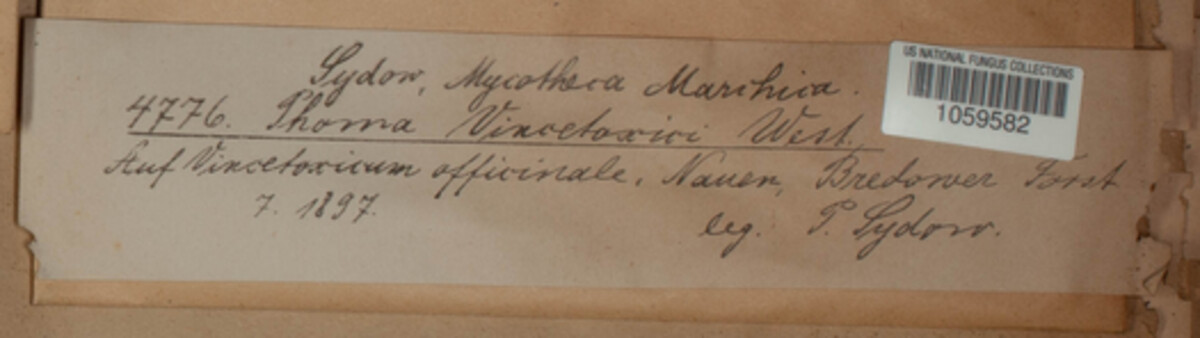 Sydow, Mycotheca Marchica.
4776. Phoma Vincetoxici West.
Auf Vincetoxicum officinale, Nauen, Bredower Forst
7. 1897.
leg. P. Sydow.
US NATIONAL FUNGUS COLLECTIONS
1059582